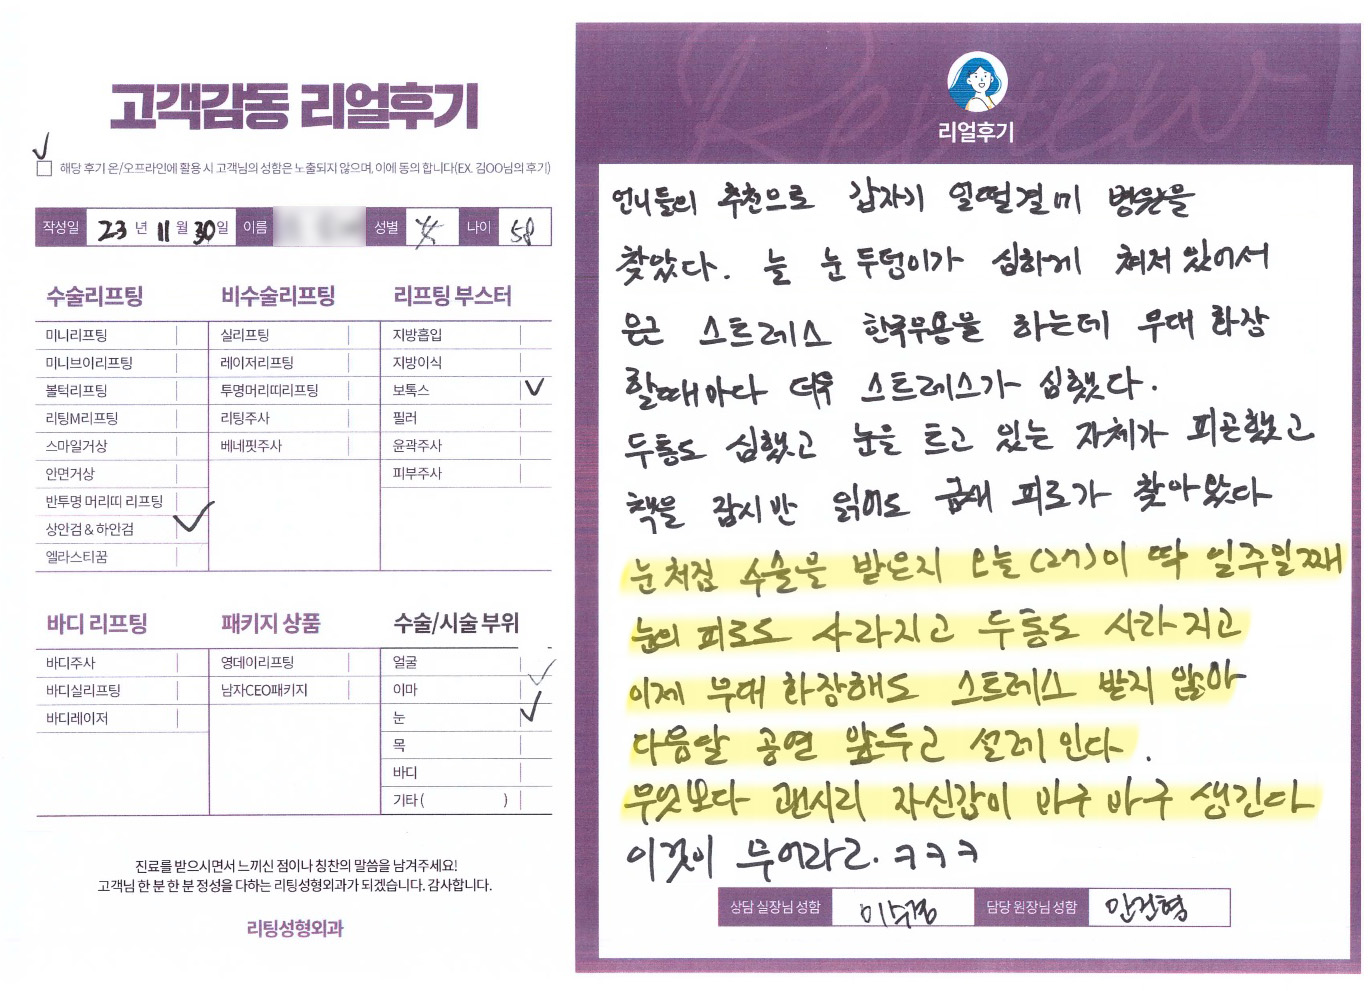 고객감동 리얼후기
해당 후기 온/오프라인에 활용 시 고객님의 성함은 노출되지 않으며, 이에 동의 합니다(EX. 김OO님의 후기)
작성일 23 년 11 월 30 일 이름 성별 女 나이 58
수술리프팅
미니리프팅
미니브이리프팅
볼턱리프팅
리팅M리프팅
스마일거상
안면거상
반투명 머리띠 리프팅
상안검&하안검
엘라스티꿈
비수술리프팅
실리프팅
레이저리프팅
투명머리띠리프팅
리팅주사
베네핏주사
리프팅 부스터
지방흡입
지방이식
보톡스
필러
윤곽주사
피부주사
바디 리프팅
바디주사
바디실리프팅
바디레이저
패키지 상품
영데이리프팅
남자CEO패키지
수술/시술 부위
얼굴
이마
눈
목
바디
기타 ( )
진료를 받으시면서 느끼신 점이나 칭찬의 말씀을 남겨주세요!
고객님 한 분 한 분 정성을 다하는 리팅성형외과가 되겠습니다. 감사합니다.
리팅성형외과
Review
리얼후기
언니들의 추천으로 갑자기 얼떨결미 병원을
찾았다. 늘 눈두덩이가 심하게 쳐져 있어서
은근 스트레스 한국무용을 하는데 무대 화장
할때마다 더욱 스트레스가 심했다.
두통도 심했고 눈을 뜨고 있는 자체가 피곤했고
책을 잠시반 읽어도 금새 피로가 찾아왔다
눈처짐 수술을 받은지 오늘(27)이 딱 일주일째
눈의 피로도 사라지고 두통도 사라지고
이제 무대 화장해도 스트레스 받지 않아
다음달 공연 앞두고 설레인다.
무엇보다 괜시리 자신감이 마구 마구 생긴다
이것이 무어라고. ㅋㅋㅋ
상담 실장님 성함 이수경 담당 원장님 성함 안건형